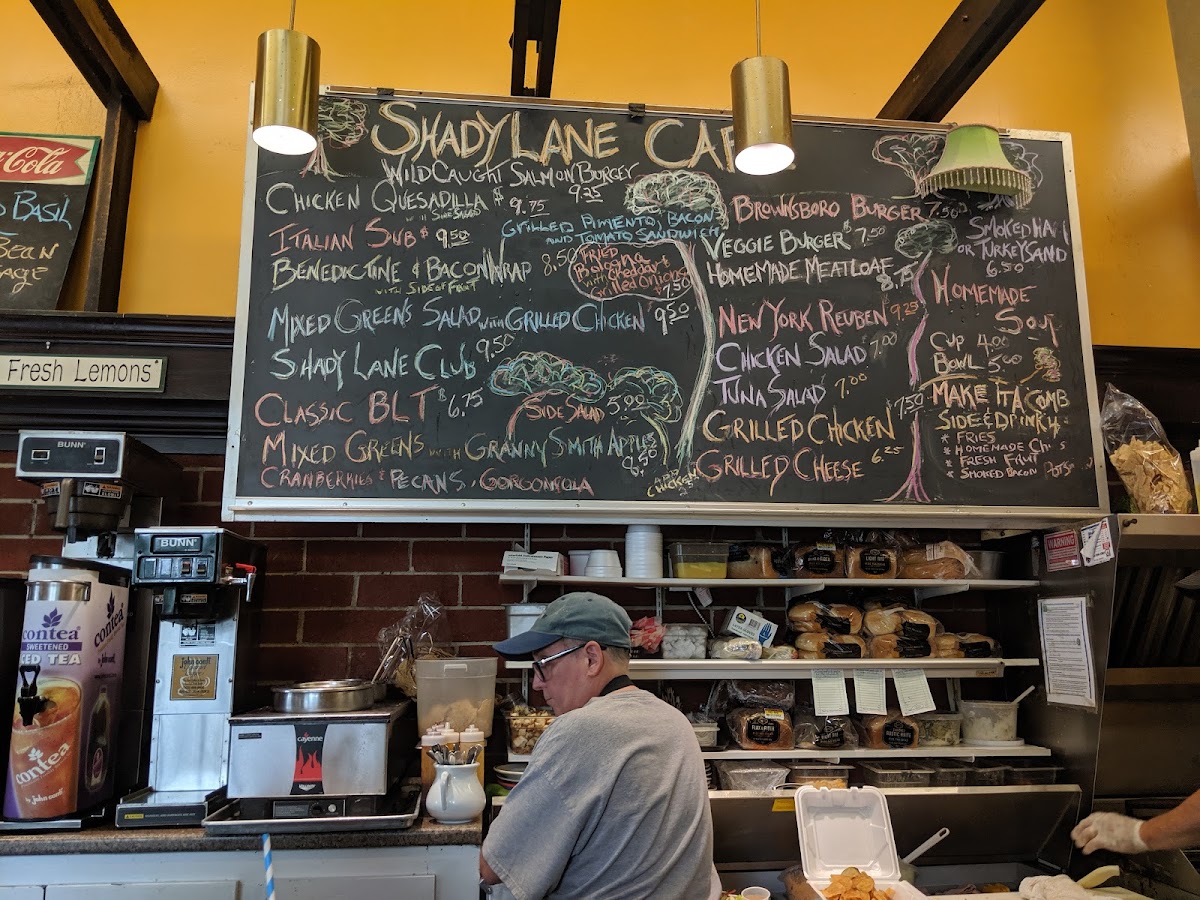 Coca-Cola
BASIL
BEAN
Fresh Lemons
SHADY LANE CAF
WILD CAUGHT SALMON BURGER
9.25
CHICKEN QUESADILLA $9.75
ITALIAN SUB $9.50
GRILLED PIMENTO, BACON
AND TOMATO SANDWICH
8.50
BENEDICTINE & BACON WRAP
WITH SIDE OF FRUIT
FRIED
Bologna
WITH Cheddar &
Grilled Onions
$7.50
MIXED GREENS SALAD WITH GRILLED CHICKEN 9.50
SHADY LANE CLUB 9.50
CLASSIC BLT $6.75
SIDE SALAD 5.00
MIXED GREENS WITH GRANNY SMITH APPLES
9.50
CRANBERRIES & PECANS, GORGONZOLA
ADD
CHICKEN
BROWNSBORO BURGER 7.50
VEGGIE BURGER $7.50
HOMEMADE MEATLOAF 8.75
NEW YORK REUBEN 9.25
CHICKEN SALAD 7.00
TUNA SALAD 7.00
$7.50
GRILLED CHICKEN
GRILLED CHEESE 6.25
SMOKED HAM
OR TURKEY SAND
6.50
HOMEMADE
SOUP
CUP 4.00
BOWL 5.00
MAKE IT A COMB
SIDE & DRINK
* FRIES
* HOMEMADE CHIPS
* FRESH FRUIT
* SMOKED BACON
BUNN
BUNN
contea
SWEETENED
ICED TEA
contea
by John Conti
contea
John Conti
cayenne
WARNING